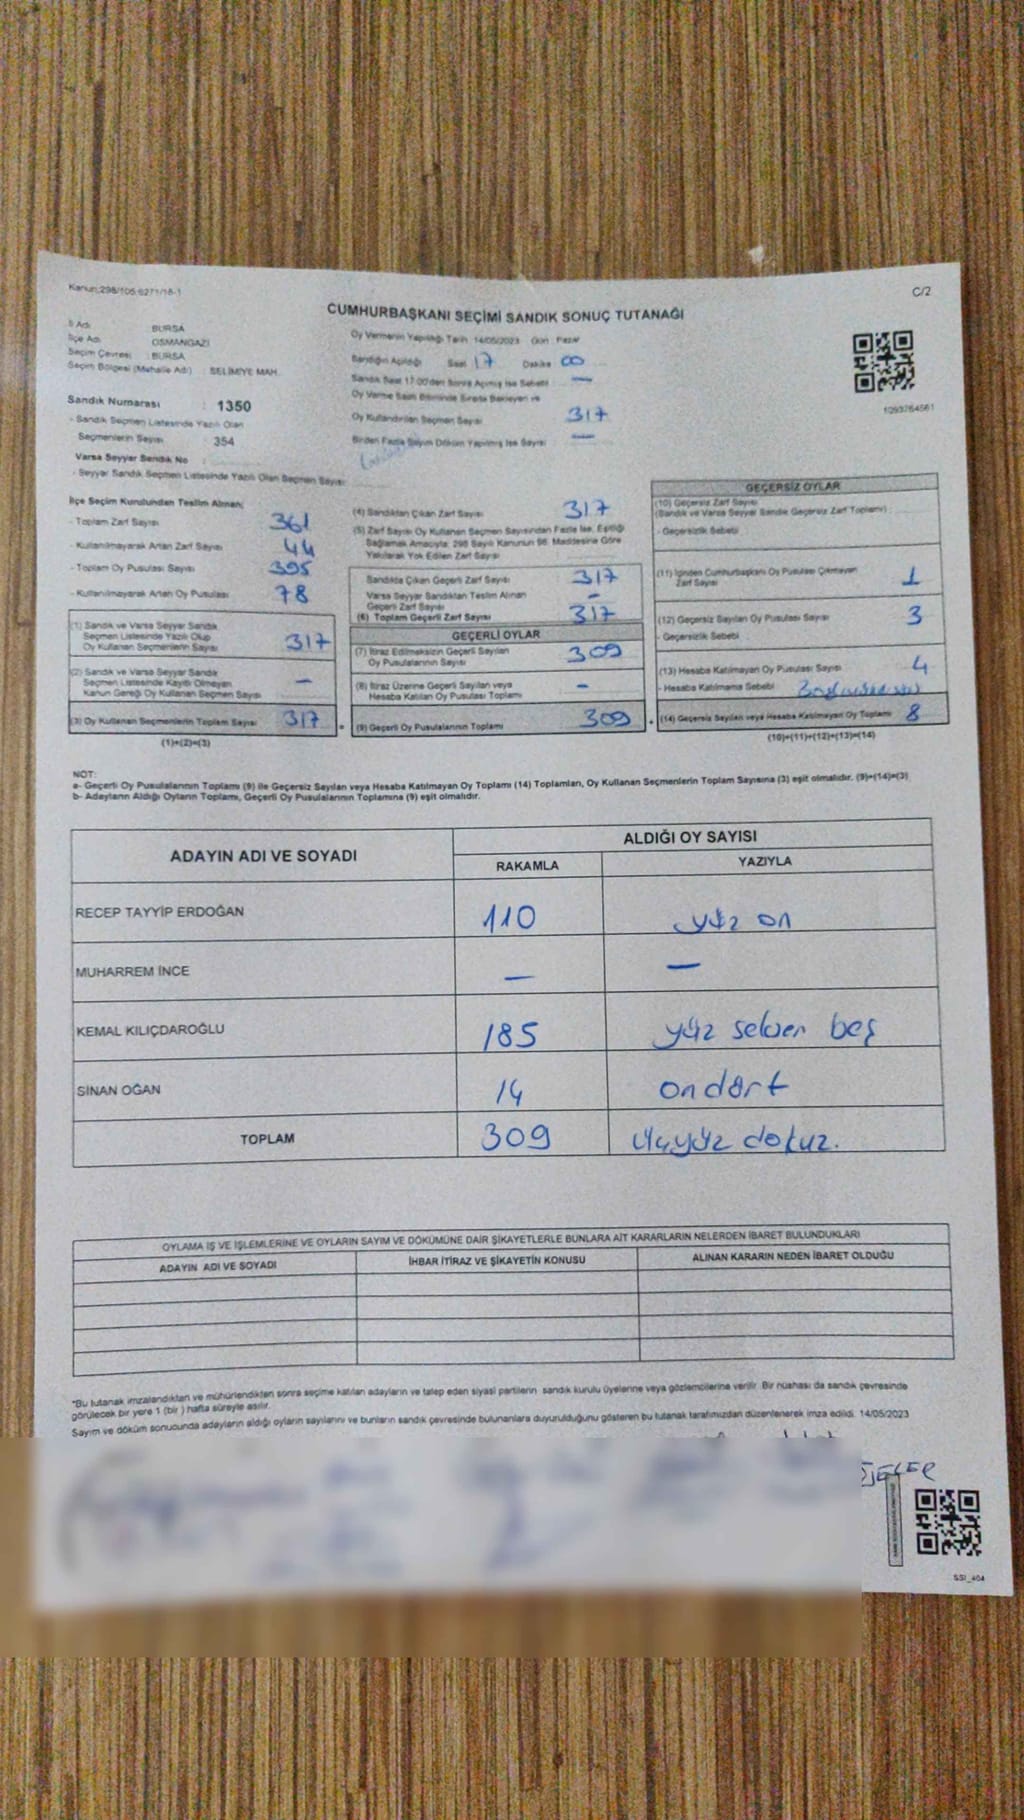 Kanun:298/105 6271/18-1
C/2
CUMHURBAŞKANI SEÇİMİ SANDIK SONUÇ TUTANAĞI
İl Adı BURSA
İlçe Adı OSMANGAZİ
Seçim Çevresi : BURSA
Seçim Bölgesi (Mahalle Adı) : SELİMİYE MAH.
Sandık Numarası : 1350
- Sandık Seçmen Listesinde Yazılı Olan
Seçmenlerin Sayısı : 354
Varsa Seyyar Sandık No :
- Seyyar Sandık Seçmen Listesinde Yazılı Olan Seçmen Sayısı
Oy Vermenin Yapıldığı Tarih 14/05/2023 Gün Pazar
Sandığın Açıldığı Saat 17 Dakika 00
Sandık Saat 17:00'den Sonra Açılmış İse Sebebi —
Oy Verme Saati Bitiminde Sırada Bekleyen ve
Oy Kullandırılan Seçmen Sayısı 317
Birden Fazla Sayım Döküm Yapılmış İse Sayısı —
1093764561
İlçe Seçim Kurulundan Teslim Alınan;
- Toplam Zarf Sayısı 361
- Kullanılmayarak Artan Zarf Sayısı 44
- Toplam Oy Pusulası Sayısı 395
- Kullanılmayarak Artan Oy Pusulası 78
(1) Sandık ve Varsa Seyyar Sandık
Seçmen Listesinde Yazılı Olup
Oy Kullanan Seçmenlerin Sayısı 317
(2) Sandık ve Varsa Seyyar Sandık
Seçmen Listesinde Kayıtlı Olmayan
Kanun Gereği Oy Kullanan Seçmen Sayısı —
(3) Oy Kullanan Seçmenlerin Toplam Sayısı 317
(1)+(2)=(3)
(4) Sandıktan Çıkan Zarf Sayısı 317
(5) Zarf Sayısı Oy Kullanan Seçmen Sayısından Fazla İse, Eşitliği
Sağlamak Amacıyla; 298 Sayılı Kanunun 98. Maddesine Göre
Yakılarak Yok Edilen Zarf Sayısı
Sandıkta Çıkan Geçerli Zarf Sayısı 317
Varsa Seyyar Sandıktan Teslim Alınan
Geçerli Zarf Sayısı —
(6) Toplam Geçerli Zarf Sayısı 317
GEÇERLİ OYLAR
(7) İtiraz Edilmeksizin Geçerli Sayılan
Oy Pusulalarının Sayısı 309
(8) İtiraz Üzerine Geçerli Sayılan veya
Hesaba Katılan Oy Pusulası Toplamı —
(9) Geçerli Oy Pusulalarının Toplamı 309
GEÇERSİZ OYLAR
(10) Geçersiz Zarf Sayısı
(Sandık ve Varsa Seyyar Sandık Geçersiz Zarf Toplamı)
- Geçersizlik Sebebi
(11) İçinden Cumhurbaşkanı Oy Pusulası Çıkmayan
Zarf Sayısı 1
(12) Geçersiz Sayılan Oy Pusulası Sayısı 3
- Geçersizlik Sebebi
(13) Hesaba Katılmayan Oy Pusulası Sayısı 4
- Hesaba Katılmama Sebebi
(14) Geçersiz Sayılan veya Hesaba Katılmayan Oy Toplamı 8
(10)+(11)+(12)+(13)=(14)
NOT:
a- Geçerli Oy Pusulalarının Toplamı (9) ile Geçersiz Sayılan veya Hesaba Katılmayan Oy Toplamı (14) Toplamları, Oy Kullanan Seçmenlerin Toplam Sayısına (3) eşit olmalıdır. (9)+(14)=(3)
b- Adayların Aldığı Oyların Toplamı, Geçerli Oy Pusulalarının Toplamına (9) eşit olmalıdır.
ADAYIN ADI VE SOYADI
ALDIĞI OY SAYISI
RAKAMLA YAZIYLA
RECEP TAYYİP ERDOĞAN 110 yüz on
MUHARREM İNCE — —
KEMAL KILIÇDAROĞLU 185 yüz seksen beş
SİNAN OĞAN 14 on dört
TOPLAM 309 üçyüz dokuz.
OYLAMA İŞ VE İŞLEMLERİNE VE OYLARIN SAYIM VE DÖKÜMÜNE DAİR ŞİKAYETLERLE BUNLARA AİT KARARLARIN NELERDEN İBARET BULUNDUKLARI
ADAYIN ADI VE SOYADI İHBAR İTİRAZ VE ŞİKAYETİN KONUSU ALINAN KARARIN NEDEN İBARET OLDUĞU
*Bu tutanak imzalandıktan ve mühürlendikten sonra seçime katılan adayların ve talep eden siyasi partilerin sandık kurulu üyelerine veya gözlemcilerine verilir. Bir nüshası da sandık çevresinde
görülecek bir yere 1 (bir) hafta süreyle asılır.
Sayım ve döküm sonucunda adayların aldığı oyların sayılarını ve bunların sandık çevresinde bulunanlara duyurulduğunu gösteren bu tutanak tarafımızdan düzenlenerek imza edildi. 14/05/2023
SSI_404